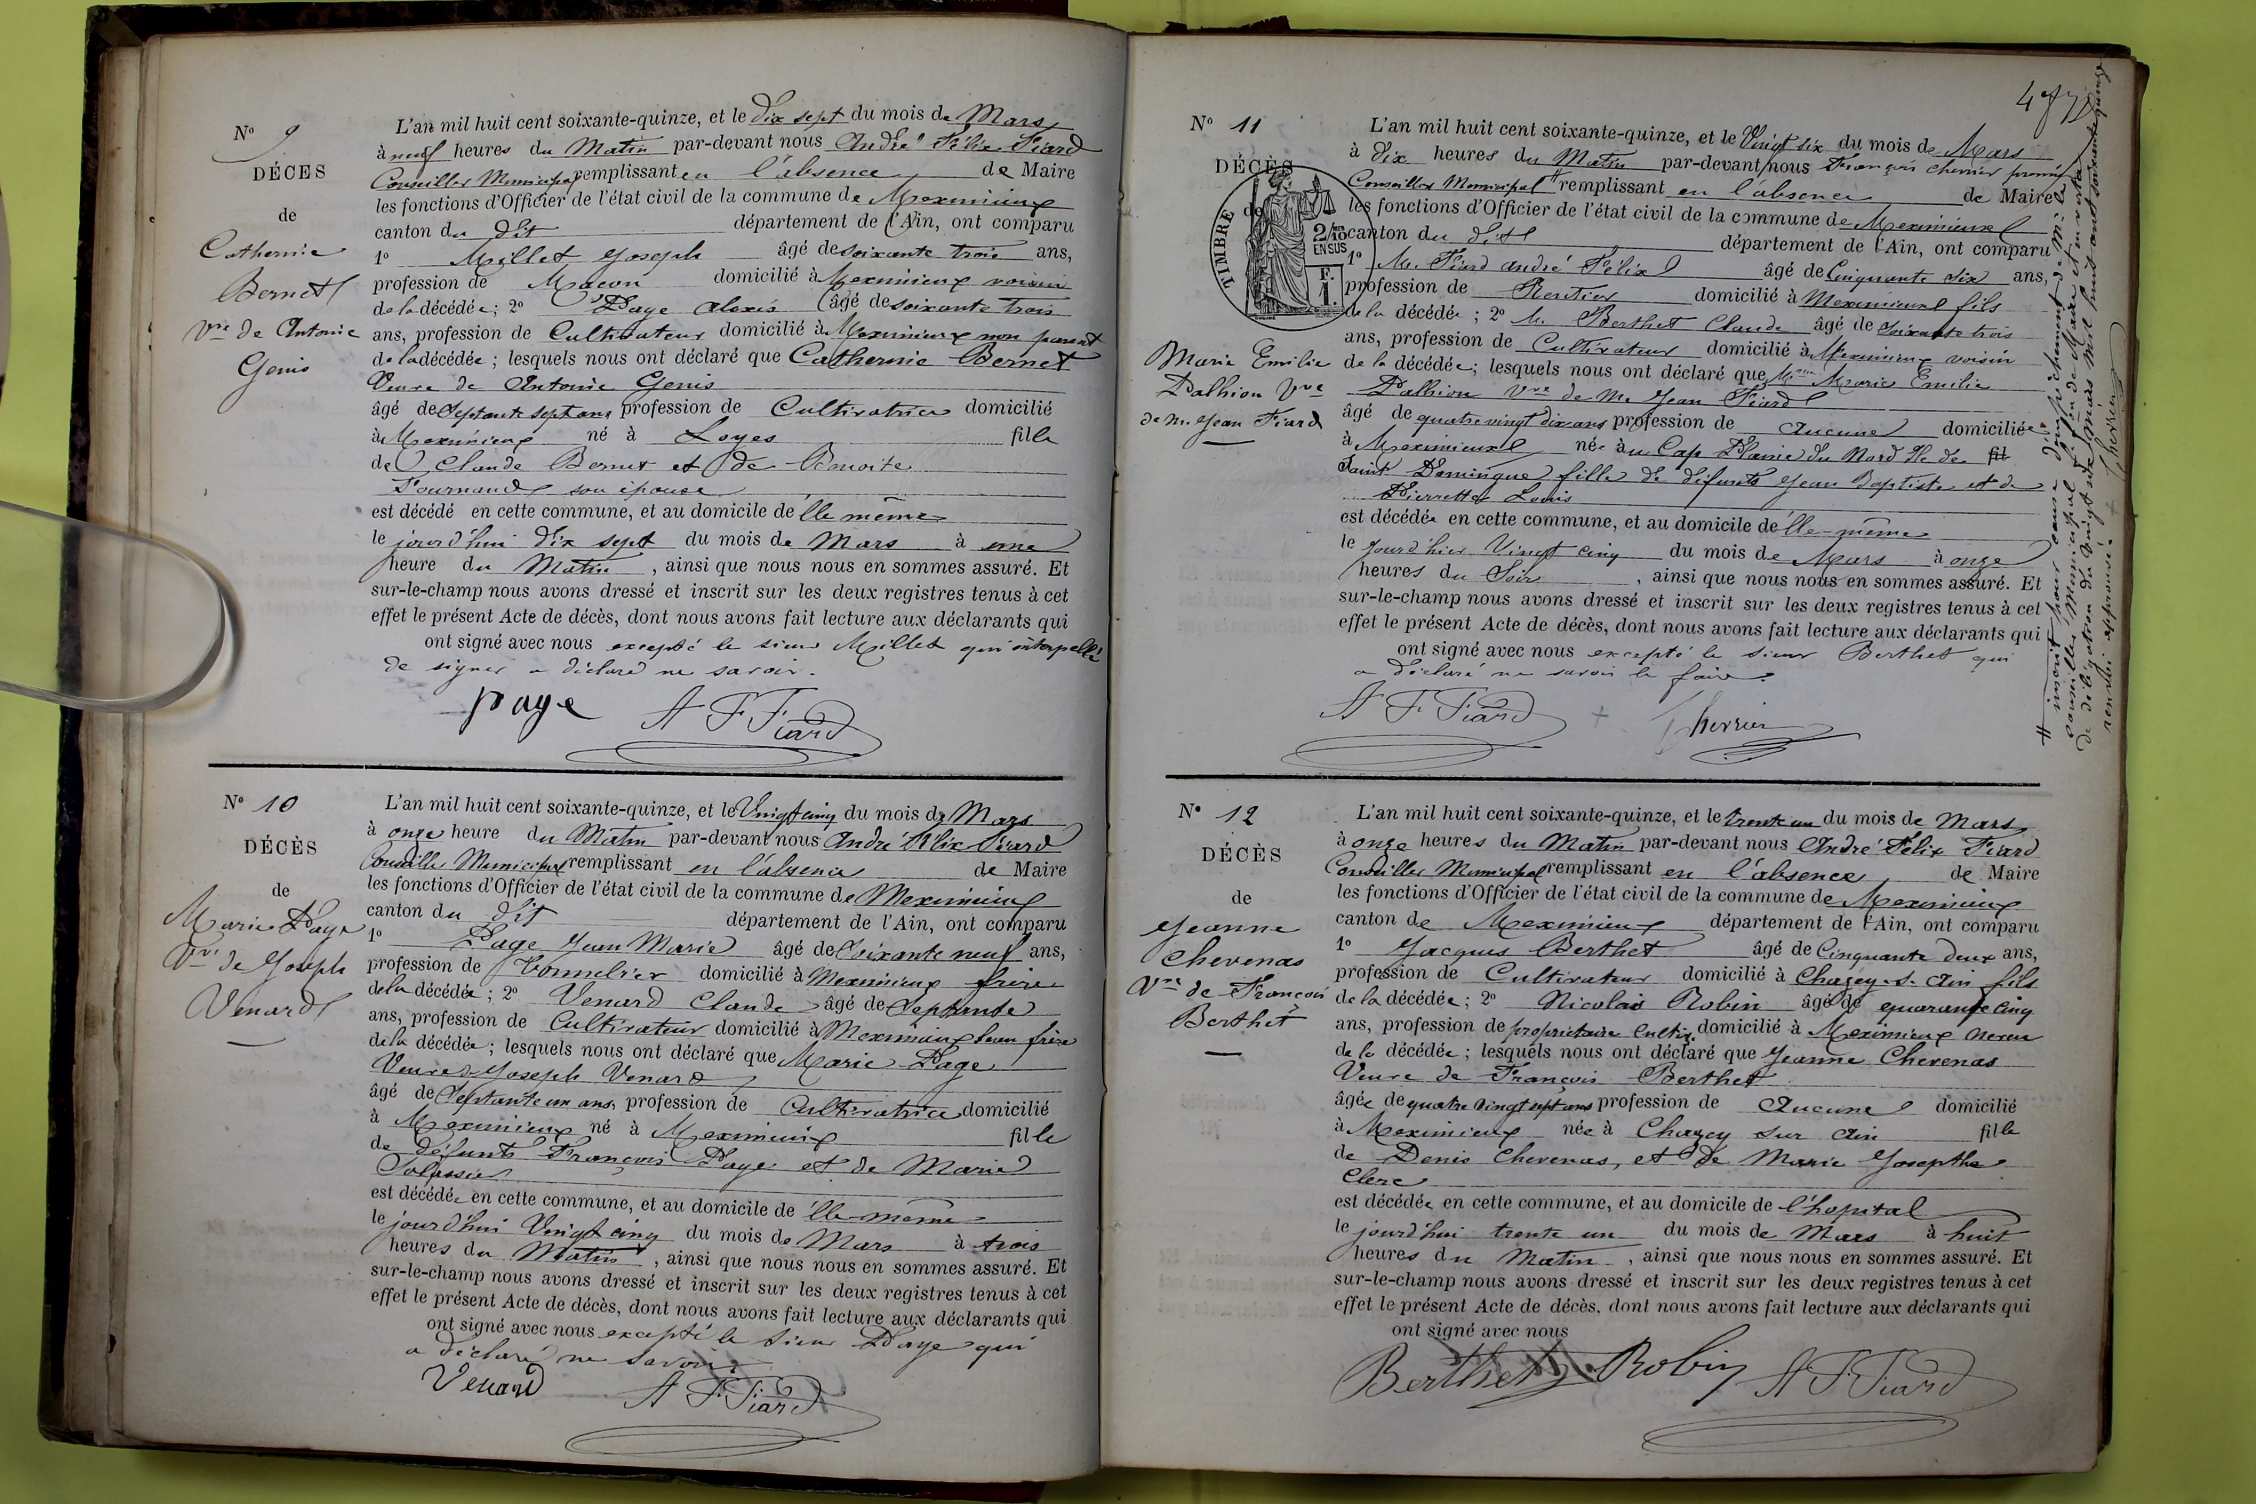 N° 9
DÉCES
de
Catherine
Bernet
Vve de Antoine
Genis
L'an mil huit cent soixante-quinze, et le Dix sept du mois de Mars
à neuf heures du Matin par-devant nous André Félix Fiard
Conseiller Municipal remplissant en l'absence de Maire
les fonctions d'Officier de l'état civil de la commune de Meximieux
canton du dit département de l'Ain, ont comparu
1° Millet Joseph âgé de soixante trois ans,
profession de Macon domicilié à Meximieux voisin
de la décédée; 2° Page Alexis âgé de soixante trois
ans, profession de Cultivateur domicilié à Meximieux non parent
de la décédée; lesquels nous ont déclaré que Catherine Bernet
Veuve de Antoine Genis
âgé de Septante sept ans profession de Cultivatrice domicilié
à Meximieux né à Loyes fille
de Claude Bernet et de Benoite
son épouse
est décédé en cette commune, et au domicile de élle même
le jourd'hui dix sept du mois de Mars à une
heure du Matin, ainsi que nous nous en sommes assuré. Et
sur-le-champ nous avons dressé et inscrit sur les deux registres tenus à cet
effet le présent Acte de décès, dont nous avons fait lecture aux déclarants qui
ont signé avec nous excepté le sieur Millet qui interpellé
de signer a déclaré ne savoir.
page A F Fiard
N° 10
DÉCÈS
de
Marie Page
Vve de Joseph
Venard
L'an mil huit cent soixante-quinze, et le Vingt cinq du mois de Mars
à onze heure du Matin par-devant nous André Félix Fiard
Conseiller Municipal remplissant en l'absence de Maire
les fonctions d'Officier de l'état civil de la commune de Meximieux
canton du dit département de l'Ain, ont comparu
1° Page Jean Marie âgé de Soixante neuf ans,
profession de Tonnelier domicilié à Meximieux frère
de la décédée; 2° Venard Claude âgé de Septante
ans, profession de Cultivateur domicilié à Meximieux beau frère
de la décédée; lesquels nous ont déclaré que Marie Page
Veuve de Joseph Venard
âgé de Septante un ans, profession de Cultivatrice domicilié
à Meximieux né à Meximieux fille
de défunts François Page et de Marie
est décédée en cette commune, et au domicile de élle-même
le jourd'hui Vingt cinq du mois de Mars à trois
heures du Matin, ainsi que nous nous en sommes assuré. Et
sur-le-champ nous avons dressé et inscrit sur les deux registres tenus à cet
effet le présent Acte de décès, dont nous avons fait lecture aux déclarants qui
ont signé avec nous excepté le sieur Page qui
a déclaré ne savoir.
Venard A F. Fiard
N° 11
DÉCÈS
de
TIMBRE
2/10
EN SUS
F.
1.
Marie Emilie
Palhion Vve
de M. Jean Fiard
L'an mil huit cent soixante-quinze, et le Vingt six du mois de Mars
à Dix heures du Matin par-devant nous François Cherrier premier
Conseiller Municipal # remplissant en l'absence de Maire
les fonctions d'Officier de l'état civil de la commune de Meximieux
canton du dit département de l'Ain, ont comparu
1° M. Fiard André Félix âgé de Cinquante Six ans,
profession de Rentier domicilié à Meximieux fils
de la décédée; 2° M. Berthet Claude âgé de Soixante trois
ans, profession de Cultivateur domicilié à Meximieux voisin
de la décédée; lesquels nous ont déclaré que Mme Marie Emilie
Palhion Vve de M. Jean Fiard
âgé de quatre vingt dix ans profession de Aucune domiciliée
à Meximieux née à u Cap Plaine du Nord Ile de fil
Saint Domingue fille de défunts Jean Baptiste et de
Pierrette Louis
est décédée en cette commune, et au domicile de élle-même
le jourd'hier Vingt cinq du mois de Mars à onze
heures du Soir, ainsi que nous nous en sommes assuré. Et
sur-le-champ nous avons dressé et inscrit sur les deux registres tenus à cet
effet le présent Acte de décès, dont nous avons fait lecture aux déclarants qui
ont signé avec nous excepté le sieur Berthet qui
a déclaré ne savoir le faire.
A F. Fiard + Cherrier
# inscrit pour cause d'empêchement de M. le
conseiller Municipal f. fon de Maire et en vertu
de délégation du vingt six Mars mil huit cent soixante quinze
renvoi approuvé. + Cherrier
N° 12
DÉCÈS
de
Jeanne
Chevenas
Vve de François
Berthet
L'an mil huit cent soixante-quinze, et le trente un du mois de Mars
à onze heures du Matin par-devant nous André Félix Fiard
Conseiller Municipal remplissant en l'absence de Maire
les fonctions d'Officier de l'état civil de la commune de Meximieux
canton de Meximieux département de l'Ain, ont comparu
1° Jacques Berthet âgé de Cinquante deux ans,
profession de Cultivateur domicilié à Chazey-s. Ain fils
de la décédée; 2° Nicolas Robin âgé de quarante cinq
ans, profession de propriétaire Cultiv. domicilié à Meximieux neveu
de la décédée; lesquels nous ont déclaré que Jeanne Chevenas
Veuve de François Berthet
âgée de quatre vingt sept ans profession de Aucune domicilié
à Meximieux née à Chazey sur Ain fille
de Denis Chevenas, et de Marie Josepthe
Clerc
est décédée en cette commune, et au domicile de l'hopital
le jourd'hui trente un du mois de Mars à huit
heures du Matin, ainsi que nous nous en sommes assuré. Et
sur-le-champ nous avons dressé et inscrit sur les deux registres tenus à cet
effet le présent Acte de décès, dont nous avons fait lecture aux déclarants qui
ont signé avec nous
Berthet Robin A F. Fiard